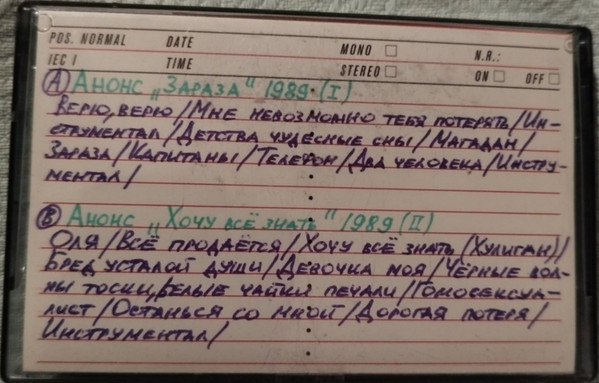 POS. NORMAL DATE MONO N.R.:
IEC I TIME STEREO ON OFF
A Анонс „Зараза" 1989 (I)
Верю, верю/Мне невозможно тебя потерять/Ин-
струментал/Детства чудесные сны/Магадан/
Зараза/Капитаны/Телефон/Два человека/Инстру-
ментал/
B Анонс „Хочу всё знать" 1989 (II)
Оля/Всё продаётся/Хочу всё знать (Хулиган)/
Бред усталой души/Девочка моя/Чёрные вол-
ны тоски, белые чайки печали/Гомосексуа-
лист/Останься со мной/Дорогая потеря/
Инструментал/